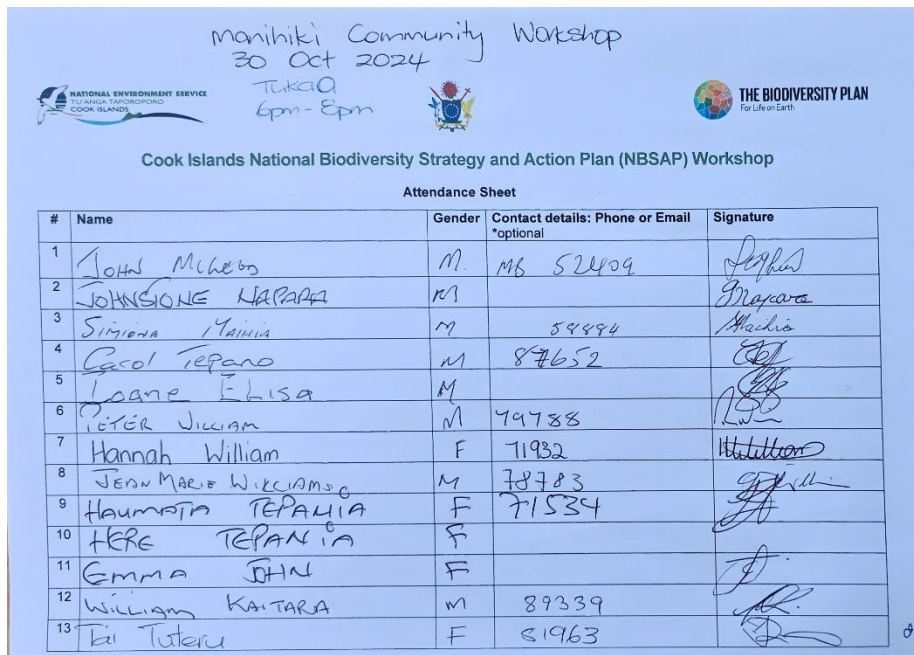 Manihiki Community Workshop
30 Oct 2024
TUKAO
6pm - 8pm
NATIONAL ENVIRONMENT SERVICE
TU'ANGA TAPOROPORO
COOK ISLANDS
THE BIODIVERSITY PLAN
For Life on Earth
Cook Islands National Biodiversity Strategy and Action Plan (NBSAP) Workshop
Attendance Sheet
# Name Gender Contact details: Phone or Email *optional Signature
1 JOHN McLEOD M. MB 52409
2 JOHNSIONE NAPARA M
3 SIMIONA M
4 Carol Tepano M 87652
5 Loane ELisa M
6 PETER WILLIAM M 79788
7 Hannah William F 71932
8 JEAN MARIE WILLIAMS M 78783
9 F 71534
10 HERE F
11 EMMA JOHN F
12 WILLIAM KAITARA M 89339
13 Tai Tuteru F 81963